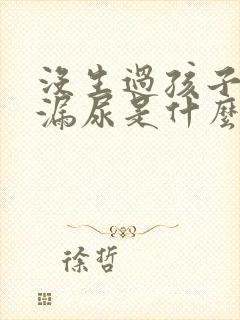 沒生過孩子
漏尿是什麼
徐哲